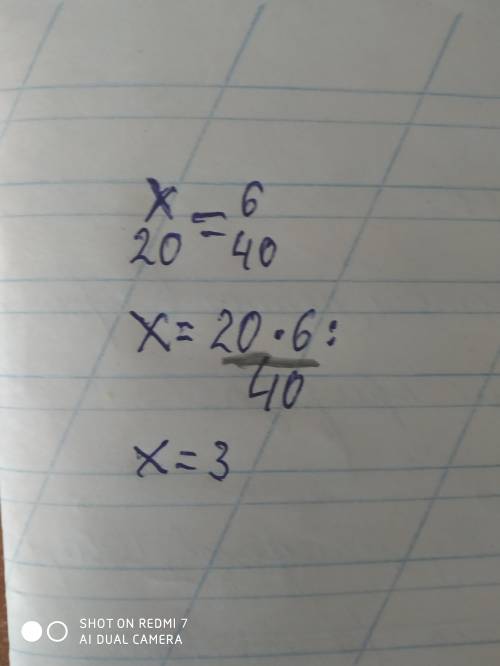 x = 6
20 40
x = 20 · 6 :
40
x = 3
SHOT ON REDMI 7
AI DUAL CAMERA